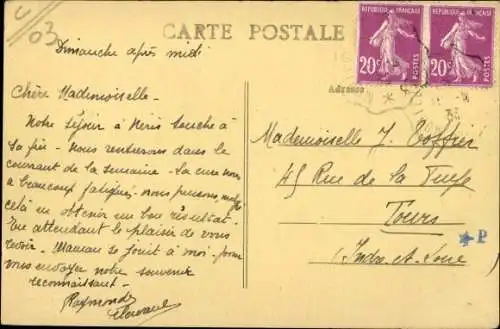 03
CARTE POSTALE
REPUBLIQUE FRANÇAISE
20c
POSTES
REPUBLIQUE FRANÇAISE
20c
POSTES
Dimanche après midi
Chère Mademoiselle -
Notre séjour à Neris touche à
sa fin - Nous rentrerons dans le
courant de la semaine - La cure nous
a beaucoup fatigués - nous pensons, malgré
celà en obtenir un bon résultat -
En attendant le plaisir de vous
revoir - Maman se joint à moi - pour
vous envoyer notre souvenir
reconnaissant -
Raymonde
Adresse
Mademoiselle J.
45 Rue de la
Tours
(Indre et Loire)
P